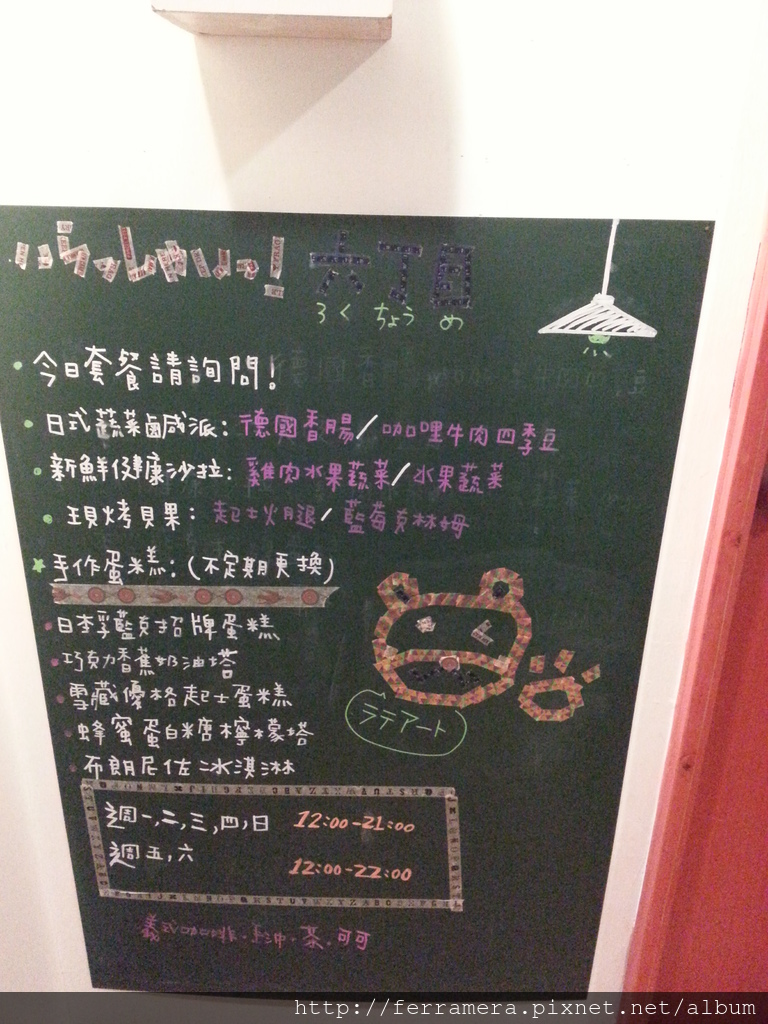 いらっしゃいっ! 六丁目
ろく ちょう め
今日套餐請詢問!
日式蔬菜鹹派:德國香腸/咖哩牛肉四季豆
新鮮健康沙拉:雞肉水果蔬菜/水果蔬菜
現烤貝果:起士火腿/藍莓克林姆
手作蛋糕:(不定期更換)
日本乳藍克招牌蛋糕
巧克力香蕉奶油塔
雪藏優格起士蛋糕
蜂蜜蛋白糖檸檬塔
布朗尼佐冰淇淋
ラテアート
週一,二,三,四,日 12:00-21:00
週五,六 12:00-22:00
義式咖啡.手沖.茶.可可
http://ferramera.pixnet.net/album